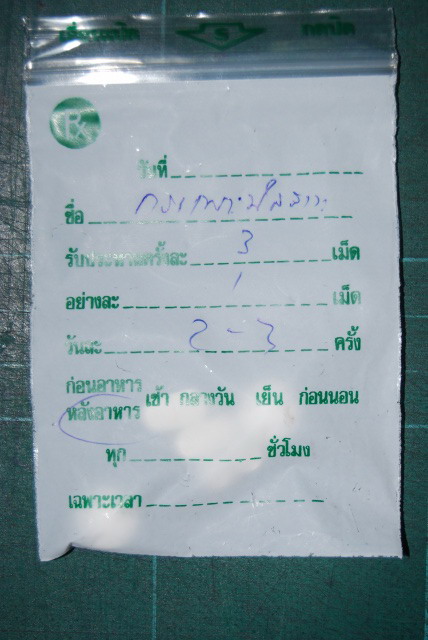 กดปิด
Rx
วันที่
ชื่อ กระเพาะปัสสาวะ
รับประทานครั้งละ 3 เม็ด
อย่างละ 1 เม็ด
วันละ 2 - 3 ครั้ง
ก่อนอาหาร
หลังอาหาร เช้า กลางวัน เย็น ก่อนนอน
ทุก ชั่วโมง
เฉพาะเวลา